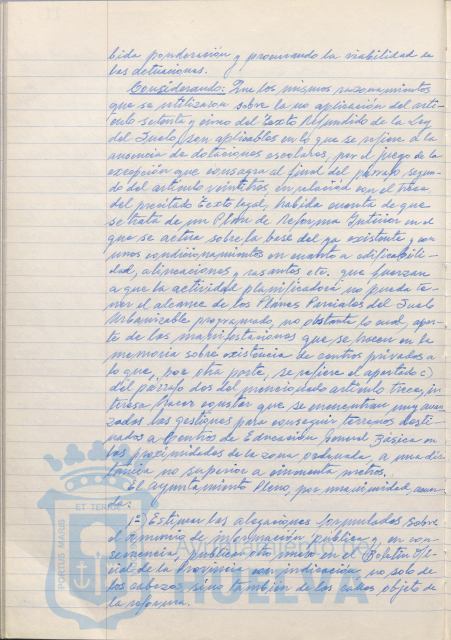 bida ponderación y procurando la viabilidad de
las actuaciones.
Considerando: Que los mismos razonamientos
que se utilizaron sobre la no aplicación del artí-
culo setenta y cinco del Texto Refundido de la Ley
del Suelo, son aplicables en lo que se refiere a la
ausencia de dotaciones escolares, por el juego de la
excepción que consagra al final del párrafo segun-
do del artículo veintitres en relación con el trece
del precitado Texto legal, habida cuenta de que
se trata de un Plan de Reforma Interior en el
que se actua sobre la base del ya existente y con
unos condicionamientos en cuanto a edificabili-
dad, alineaciones y rasantes etc. que fuerzan
a que la actividad planificadora no pueda te-
ner el alcance de los Planes Parciales del Suelo
Urbanizable programado, no obstante lo cual, apar-
te de las manifestaciones que se hacen en la
memoria sobre existencia de centros privados a
lo que, por otra parte, se refiere el apartado c)
del párrafo dos del mencionado artículo trece, in-
teresa hacer constar que se encuentran muy avan-
zadas las gestiones para conseguir terrenos desti-
nados a Centros de Educación General Básica en
las proximidades de la zona ordenada, a una dis-
tancia no superior a cincuenta metros.
El Ayuntamiento Pleno, por unanimidad, acuer-
da:
1º) Estimar las alegaciones formuladas sobre
el anuncio de información pública y, en con-
secuencia, publicar otro nuevo en el Boletín Ofi-
cial de la Provincia con indicación no solo de
las cabezas, sino también de las calles objeto de
la reforma.
PORTUS MARIS
ET TERRAE
HUELVA